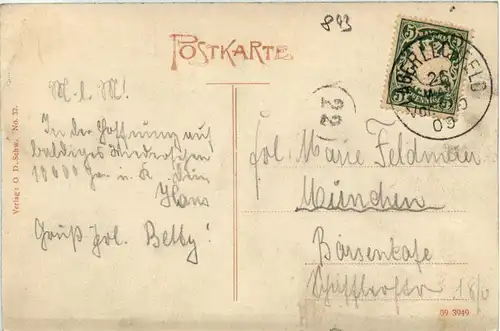 843
POSTKARTE
5
LAGER LECHFELD
26
09
M. l. M!
In der Hoffnung auf
baldiges Wiedersehen
10000 Gr. u. K. Dein
Hans
Gruß Frl. Betty!
Verlag: O. D. Schw. No. 32.
22
Frl. Marie Feldmeier
München
Börsenkafe
Schäfflerstr 18/0
09 3949